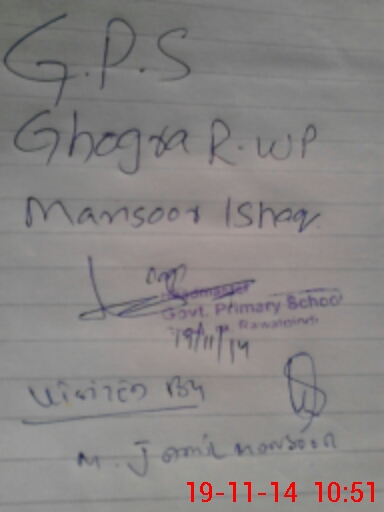 G.P.S
Ghogra R.WP
Mansoor Ishaq
Headmaster
Govt. Primary School
Rawalpindi
19/11/14
Visited By
M. Jamil mansoor
19-11-14 10:51